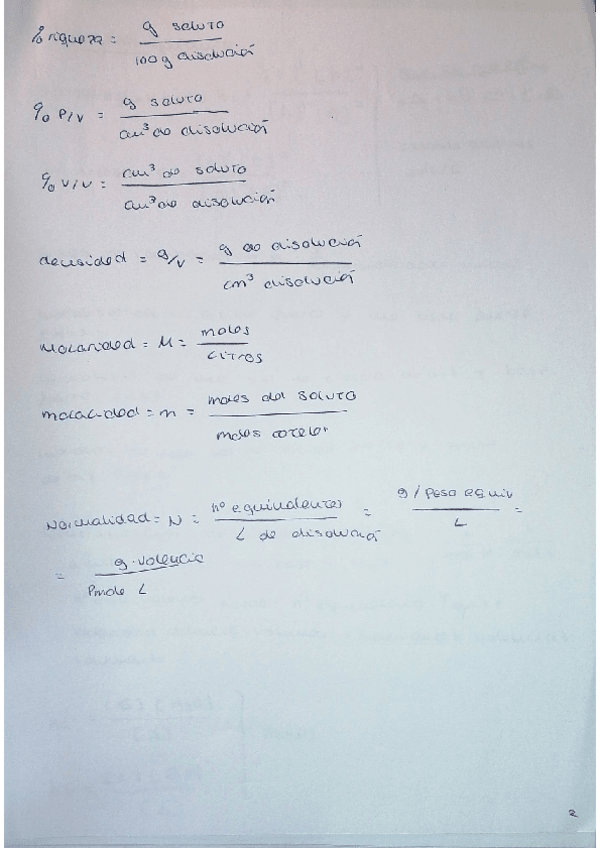 % riqueza = g soluto / 100 g disolución
% P/V = g soluto / cm³ de disolución
% V/V = cm³ de soluto / cm³ de disolución
densidad = g/v = g de disolución / cm³ disolución
Molaridad = M = moles / Litros
molalidad = m = moles del soluto / moles totales
Normalidad = N = nº equivalentes / L de disolución = g / Peso equiv / L =
= g · valencia / Pmol · L
2